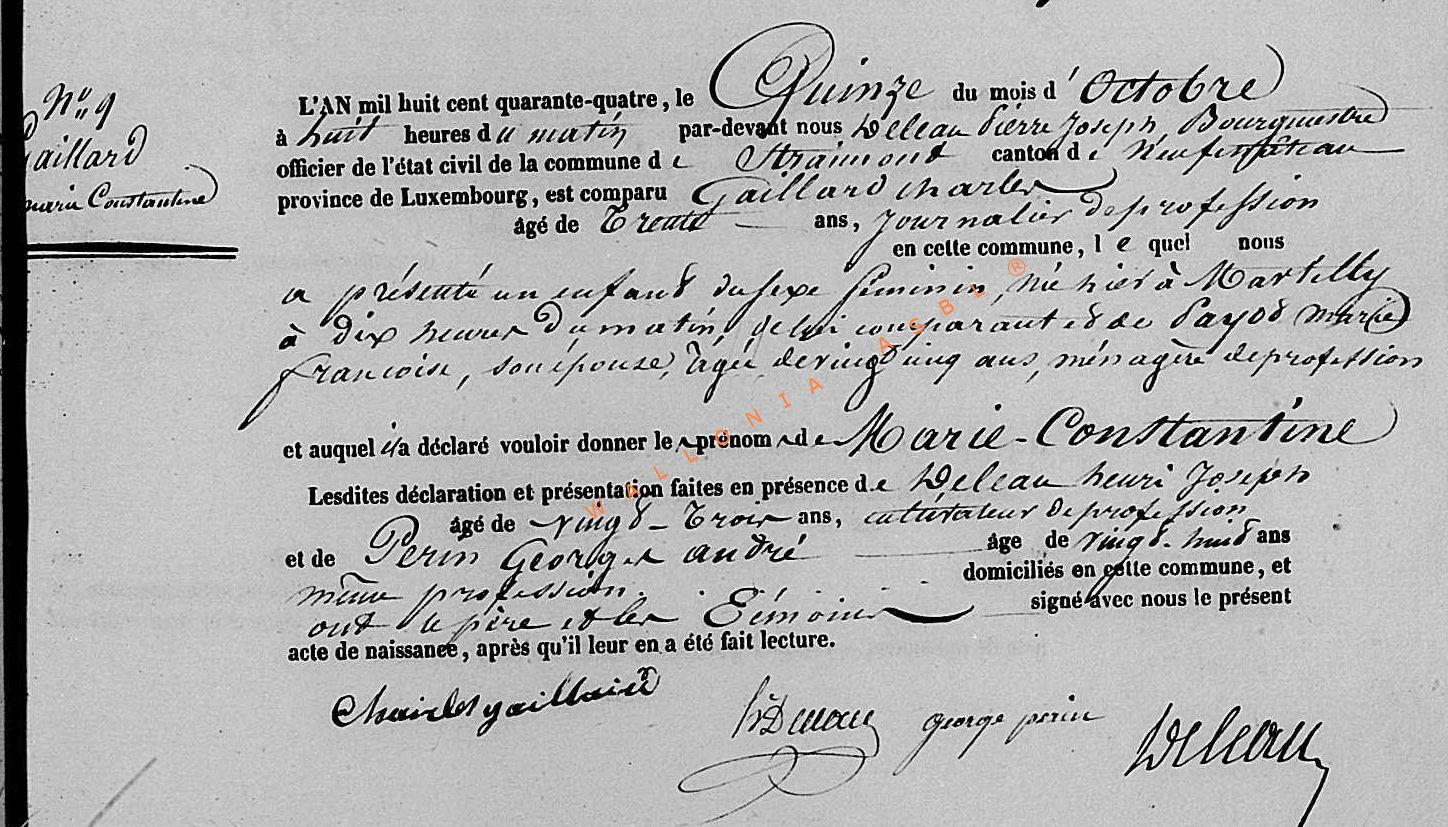 N° 9
Gaillard
marie Constantine
L'AN mil huit cent quarante-quatre, le Quinze du mois d'Octobre
à huit heures du matin par-devant nous Deleau Pierre Joseph, Bourguestre
officier de l'état civil de la commune de Straimont canton de Neufchateau
province de Luxembourg, est comparu Gaillard charles
âgé de Trente ans, journalier de profession
en cette commune, lequel nous
a présenté un enfant du sexe féminin, né hier à Martilly
à dix heures du matin, de lui comparant et de Payot marie
francoise, son épouse, âgée de vingt cinq ans, ménagère de profession
et auquel il a déclaré vouloir donner le prénom de Marie-Constantine
Lesdites déclaration et présentation faites en présence de Deleau henri Joseph
âgé de vingt-trois ans, cultivateur de profession
et de Perin Georges andré âge de vingt-huit ans
même profession. domiciliés en cette commune, et
ont le père et les Témoins signé avec nous le présent
acte de naissance, après qu'il leur en a été fait lecture.
Charles gaillard
hDeleau george perin Deleau
WALLONIA ASBL ®